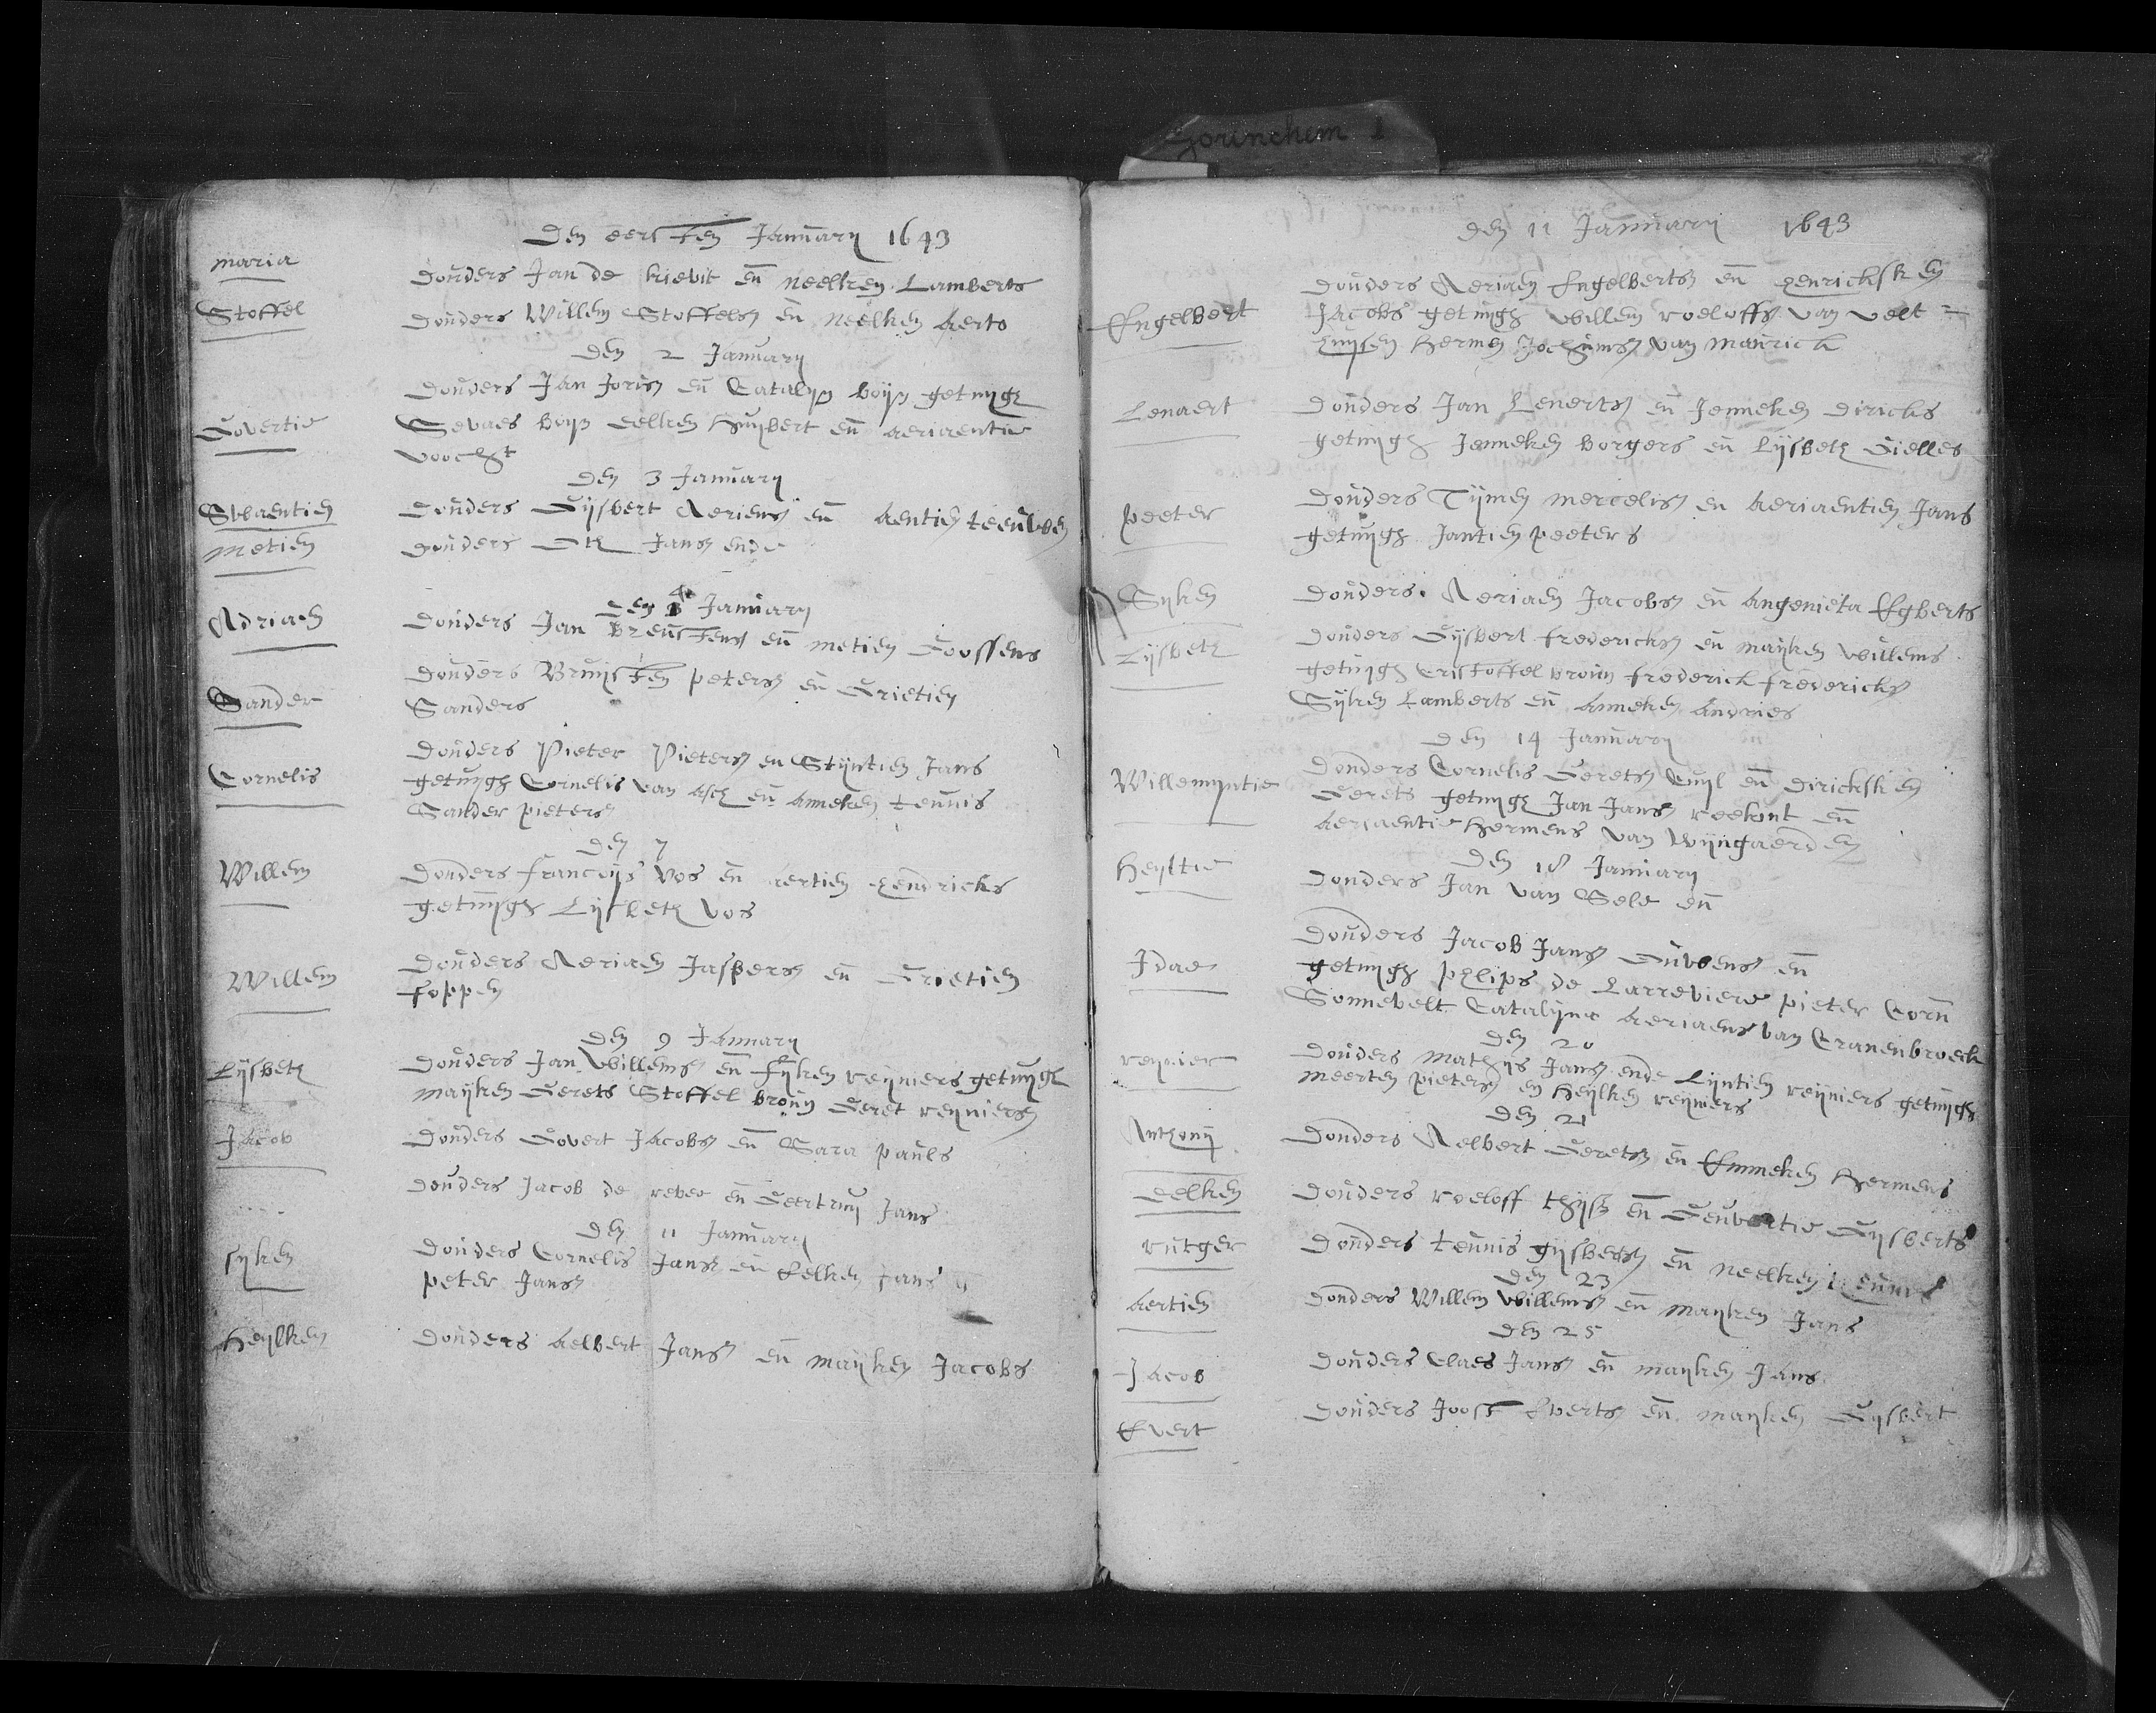 Gorinchem 1
Den eersten Januarij 1643
maria
douders Jan de kievit en neelken Lamberts
Stoffel
douders Willem Stoffelsz en neelken Aerts
den 2 Januarij
douders Jan Jorisz en Catalijn boijs getuijgh
Govertie
Sevaes boijs eelken Huijbert en aeriaentie
voocht
den 3 Januarij
Swaentien
douders Gijsbert Aeriensz en Aentien teeuwen
metien
douders Ott Jansz ende
den 4 Januarij
Adriaen
douders Jan Breustensz en metien Goossens
Sander
douders Bruijsten petersz en Grietien
Sanders
Cornelis
douders Pieter Pietersz en Stijntien Jans
getuijgh Cornelis van Asch en Anneken teunis
Sander pietersz
den 7
Willem
douders francoijs Vos en aertien hendricks
getuijgh Lijsbeth Vos
Willem
douders Aeriaen Jaspersz en Grietien
foppen
den 9 Januarij
Lijsbeth
douders Jan Willemsz en fijken reijniers getuijgh
maijken Gerets Stoffel broun Geret reijniersz
Jacob
douders Govert Jacobsz en Sara pauls
douders Jacob de rever en Geertruij Jans
den 11 Januarij
sijken
douders Cornelis Jansz en Eelken Jans
peter Jansz
Heijlken
douders Aelbert Jansz en maijken Jacobs
den 11 Januarij 1643
Engelbert
douders Aeriaen Engelbertsz en henricksken
Jacobs getuijgh Willem roeloffs van velt=
huijsen Hermen Jochumsz van maurick
Lenaert
douders Jan Lenertsz en Jenneken diricks
getuijgh Jenneken borgers en Lijsbeth Gielles
peeter
douders Tijmen mercelisz en Aeriaentien Jans
getuijgh Jantien peeters
Sijken
douders Aeriaen Jacobsz en Angenieta Egberts
Lijsbeth
douders Gijsbert fredericksz en maijken Willems
getuijgh Cristoffel broun frederick fredericksz
Sijken Lamberts en Anneken Andries
den 14 Januarij
Willemijntie
douders Cornelis Geretsz Cuijl en diricksken
Gerets getuijgh Jan Jansz en
Aeriaentie Hermens van Wijngaerden
den 18 Januarij
Heijltie
douders Jan van Sele en
Idae
douders Jacob Jansz en
getuijgh philips de Larreviere pieter Corn
Sonnevelt Catalijne Aeriaens van Cranenbroeck
den 20
reijnier
douders mathijs Jansz ende Lijntien reijniers getuijgh
meerten pietersz en Heijlken reijniers
den 21
Anthonij
douders Aelbert Geretsz en Emmeken Hermens
eelken
douders roeloff thijsz en Geuvertie Gijsberts
rutger
douders teunis gijsbertsz en neelken
den 23
Aertien
douders Willem Willemsz en maijken Jans
den 25
Jacob
douders Claes Jansz en maijken Jans
Evert
douders Joost Evertsz en maijken Gijsbert